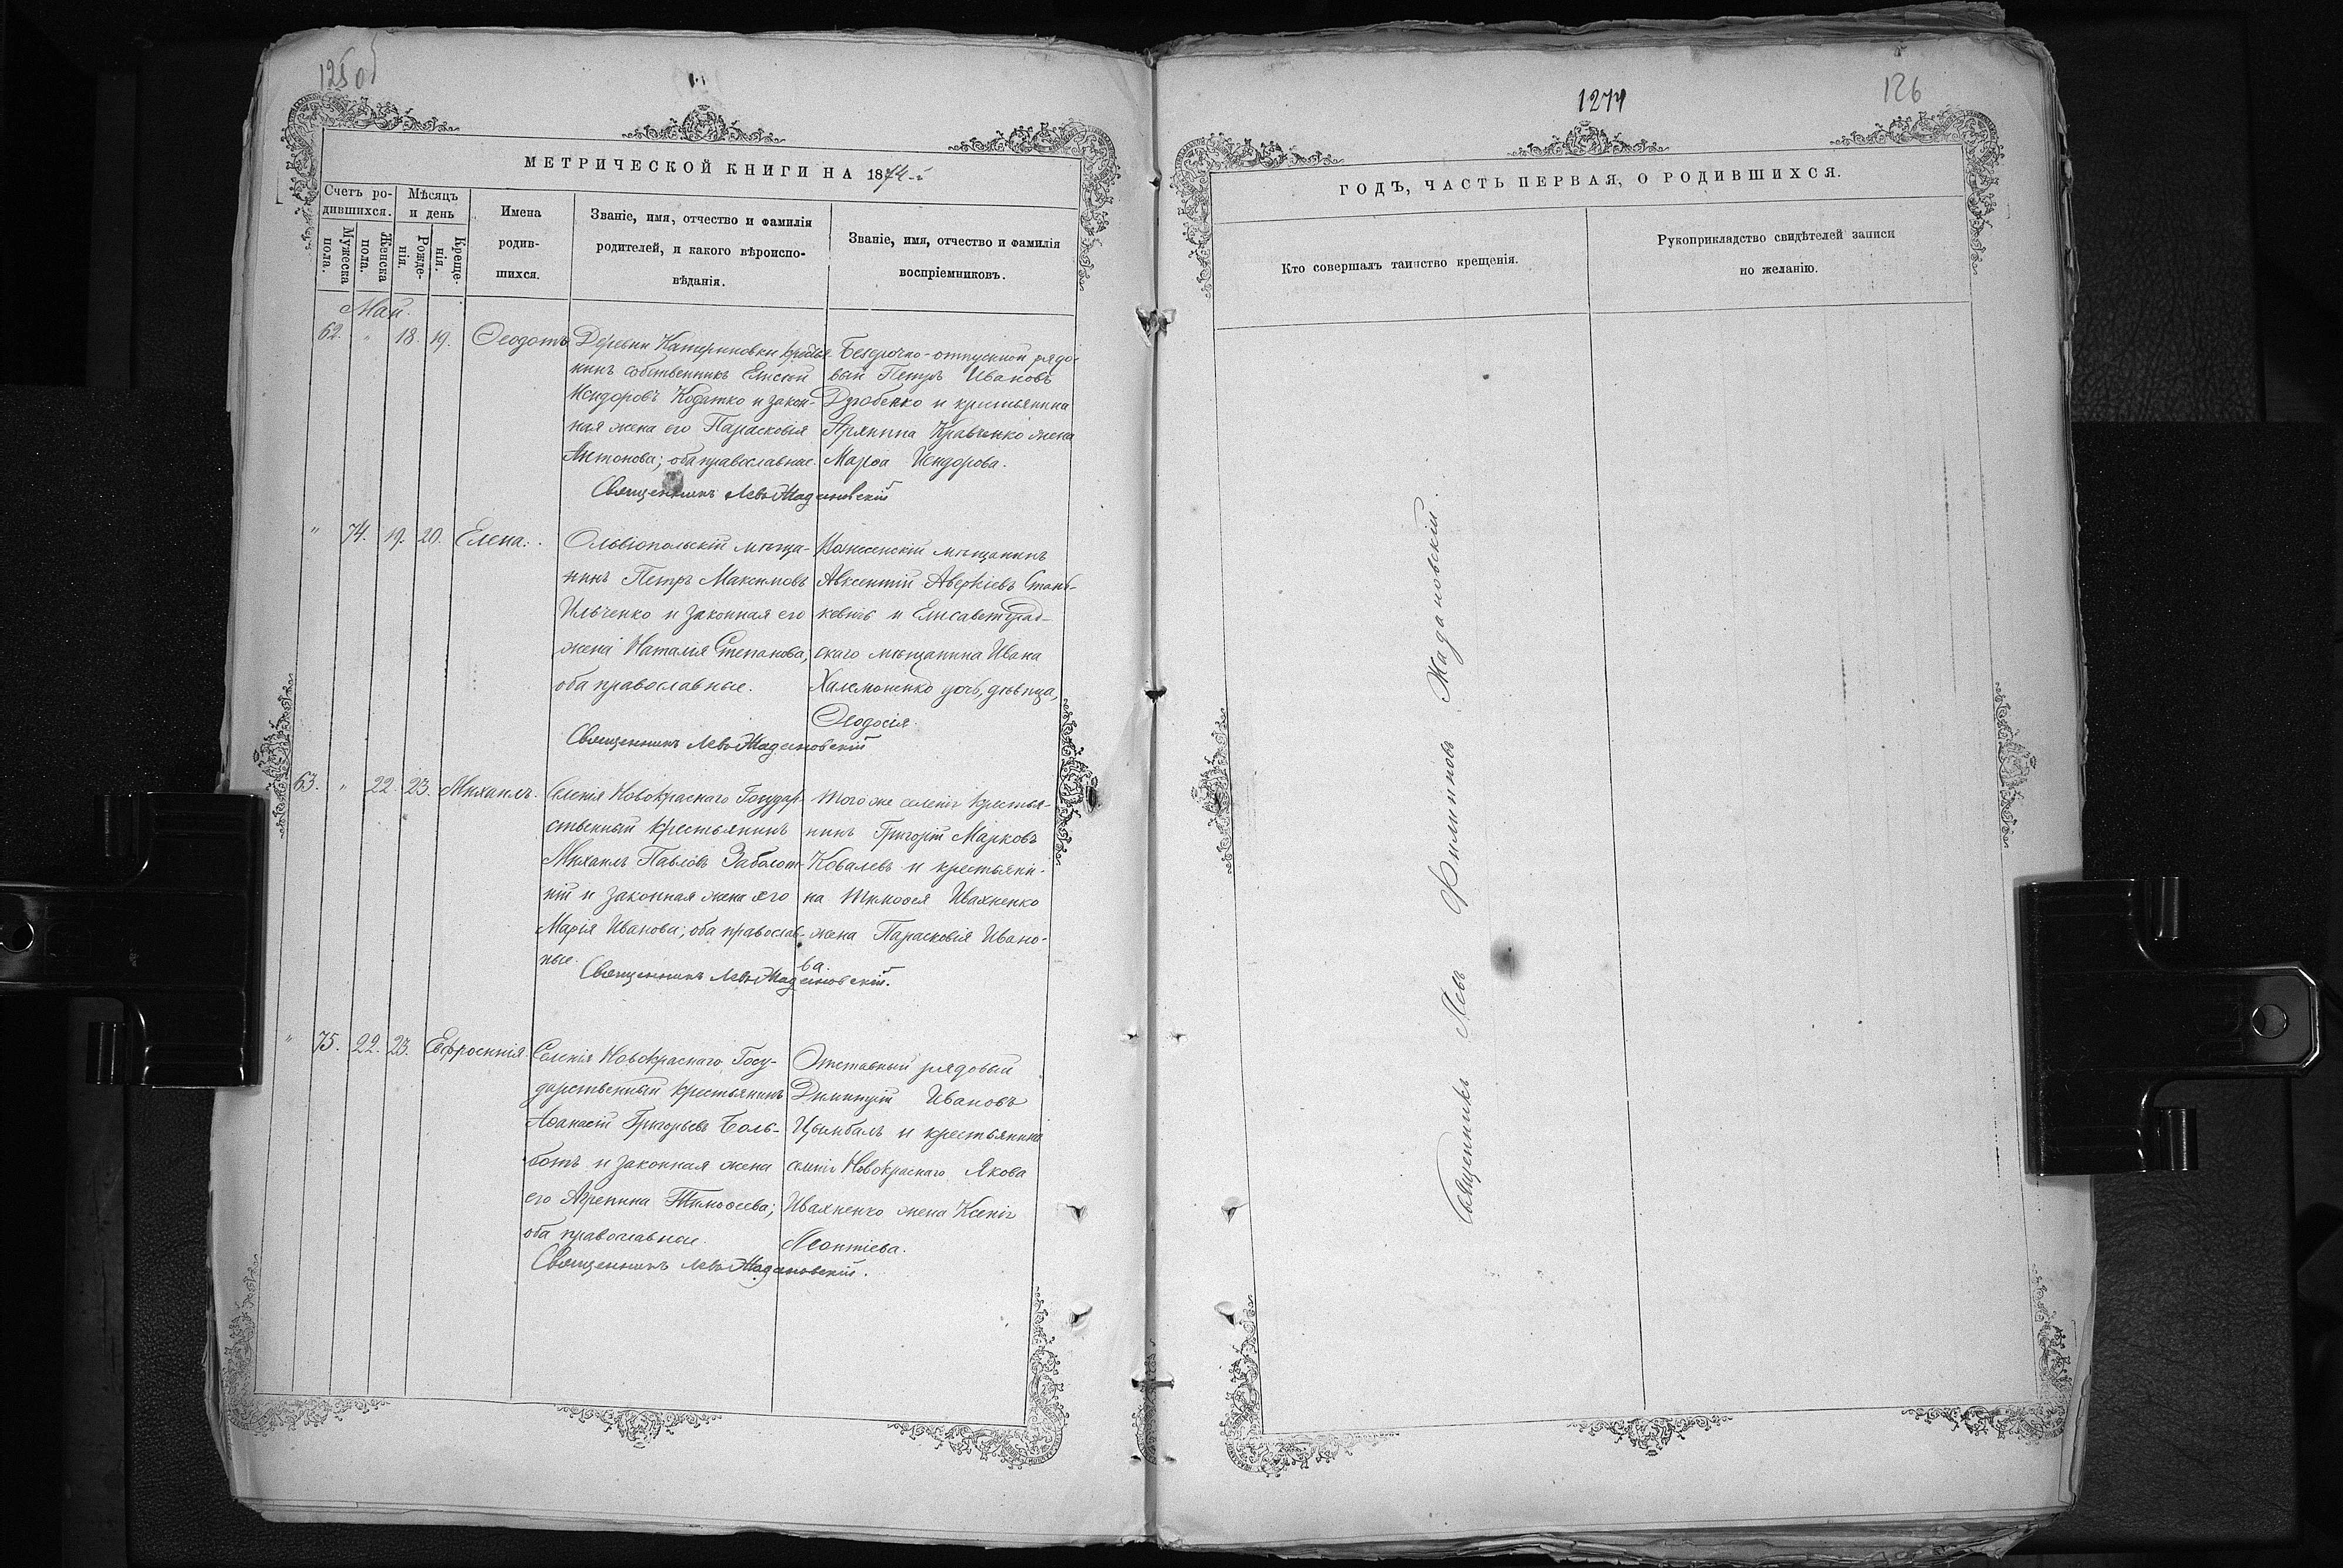 125об
МЕТРИЧЕСКОЙ КНИГИ НА 1874-й
Счетъ ро-
дившихся.
Мужеска
пола.
Женска
пола.
Мѣсяцъ
и день
Рожде-
нія.
Креще-
нія.
Имена
родив-
шихся.
Званіе, имя, отчество и фамилія
родителей, и какого вѣроиспо-
вѣданія.
Званіе, имя, отчество и фамилія
воспріемниковъ.
Май.
62. " 18. 19. Ѳеодотъ
Деревни Катериновки крестья
нинъ собственникъ Елисей
Исидоровъ Кодатко и закон-
ная жена его Параскевія
Антонова; оба православные.
Безсрочно-отпускной рядо-
вый Петръ Ивановъ
Дзюбенко и крестьянина
Кравченко жена
Марѳа Исидорова.
Священникъ Левъ Жадановскій
" 74. 19. 20. Елена.
Ольвіопольскій мѣща-
нинъ Петръ Максимовъ
Ильченко и законная его
жена Наталія Степанова,
оба православные.
Вознесенскій мѣщанинъ
Авксентій Аверкіевъ Стань-
кевичъ и Елисаветград-
скаго мѣщанина Ивана
Халемоненко дочь, дѣвица,
Ѳеодосія.
Священникъ Левъ Жадановскій
63. " 22. 23. Михаилъ.
Селенія Новокраснаго Государ-
ственный крестьянинъ
Михаилъ Павловъ Заболот-
ній и законная жена его
Марія Иванова; оба православ-
ные.
Того же селенія крестья-
нинъ Григорій Марковъ
Ковалевъ и крестьяни-
на Тимоѳея Ивахненко
жена Параскевія Ивано-
ва.
Священникъ Левъ Жадановскій.
" 75. 22. 23. Евфросинія.
Селенія Новокраснаго Госу-
дарственный крестьянинъ
Аѳанасій Григорьевъ Боль-
ботъ и законная жена
его Агрепина Тимоѳеева;
оба православные.
Отставный рядовый
Димитрій Ивановъ
Цымбалъ и крестьянина
селенія Новокраснаго Якова
Ивахненко жена Ксенія
Леонтіева.
Священникъ Левъ Жадановскій.
126
1274
ГОДЪ, ЧАСТЬ ПЕРВАЯ, О РОДИВШИХСЯ.
Кто совершалъ таинство крещенія.
Рукоприкладство свидѣтелей записи
по желанію.
Священникъ Левъ Филипповъ Жадановскій.